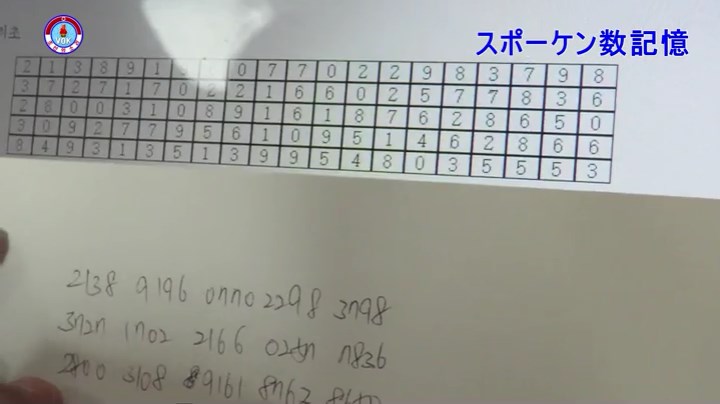 스포ーケン数記憶
2 1 3 8 9 1 0 7 7 0 2 2 9 8 3 7 9 8
3 7 2 7 1 7 0 2 2 1 6 6 0 2 5 7 7 8 3 6
2 8 0 0 3 1 0 8 9 1 6 1 8 7 6 2 8 6 5 0
3 0 9 2 7 7 9 5 6 1 0 9 5 1 4 6 2 8 6 6
8 4 9 3 1 3 5 1 3 9 9 5 4 8 0 3 5 5 5 3
2138 9196 0770 2298 3798
3727 1702 2166 7836
3108 9161 8762